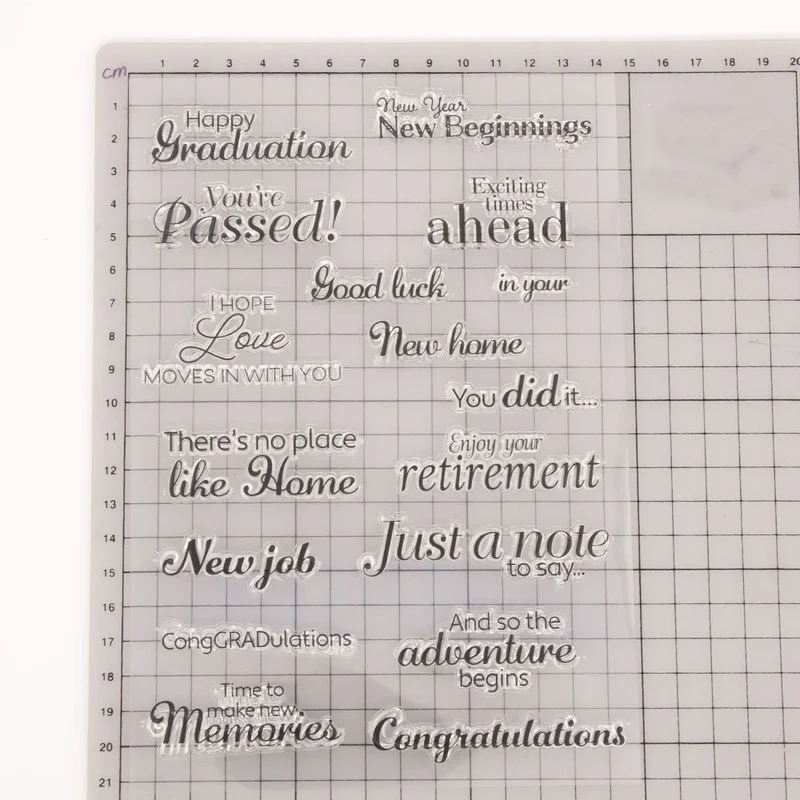 cm
1 2 3 4 5 6 7 8 9 10 11 12 13 14 15 16 17 18 19 20
1
2
3
4
5
6
7
8
9
10
11
12
13
14
15
16
17
18
19
20
21
Happy
Graduation
New Year
New Beginnings
You've
Passed!
Exciting
times
ahead
Good luck
in your
I HOPE
Love
MOVES IN WITH YOU
New home
You did it...
There's no place
like Home
Enjoy your
retirement
New job
Just a note
to say...
CongGRADulations
And so the
adventure
begins
Time to
make new
Memories
Congratulations